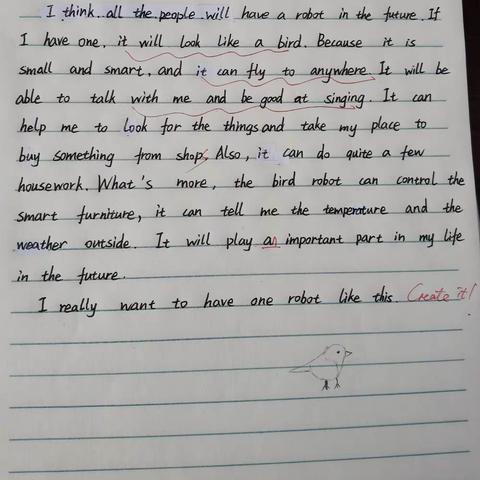 I think all the people will have a robot in the future. If
I have one, it will look like a bird. Because it is
small and smart, and it can fly to anywhere. It will be
able to talk with me and be good at singing. It can
help me to look for the things and take my place to
buy something from shop, Also, it can do quite a few
housework. What's more, the bird robot can control the
smart furniture, it can tell me the temperature and the
weather outside. It will play an important part in my life
in the future.
I really want to have one robot like this. Create it!